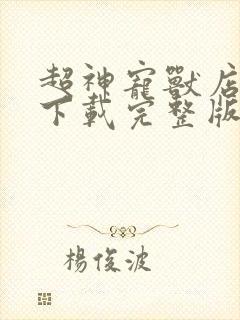 超神寵獸店
下載完整版
楊俊波